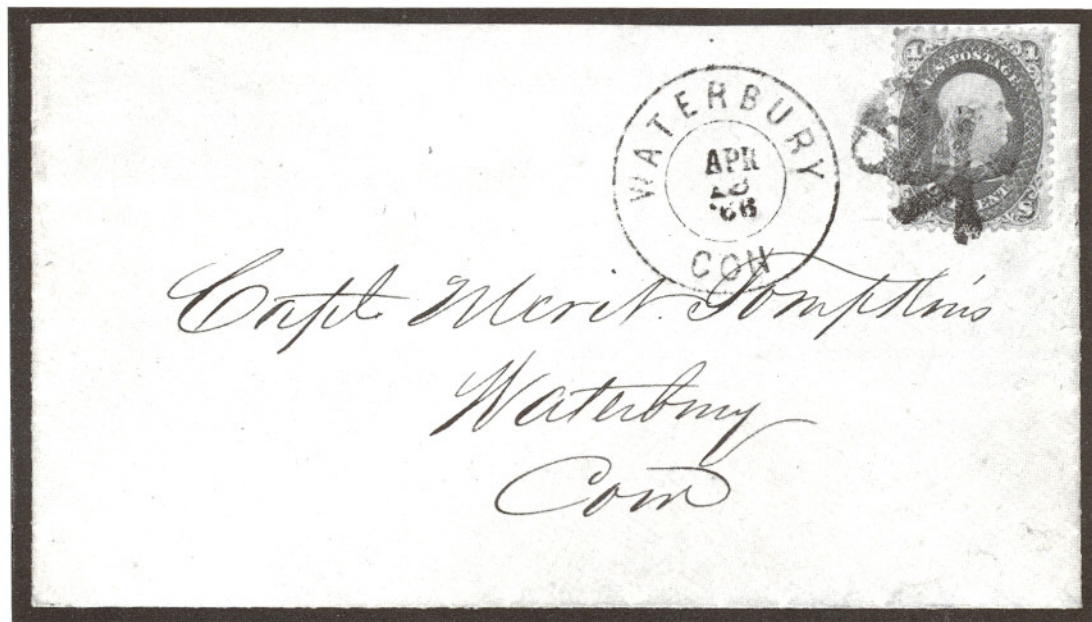 WATERBURY
APR
'66
CON
U.S. POSTAGE
Capt. Merit. Tompkins
Waterbury
Conn